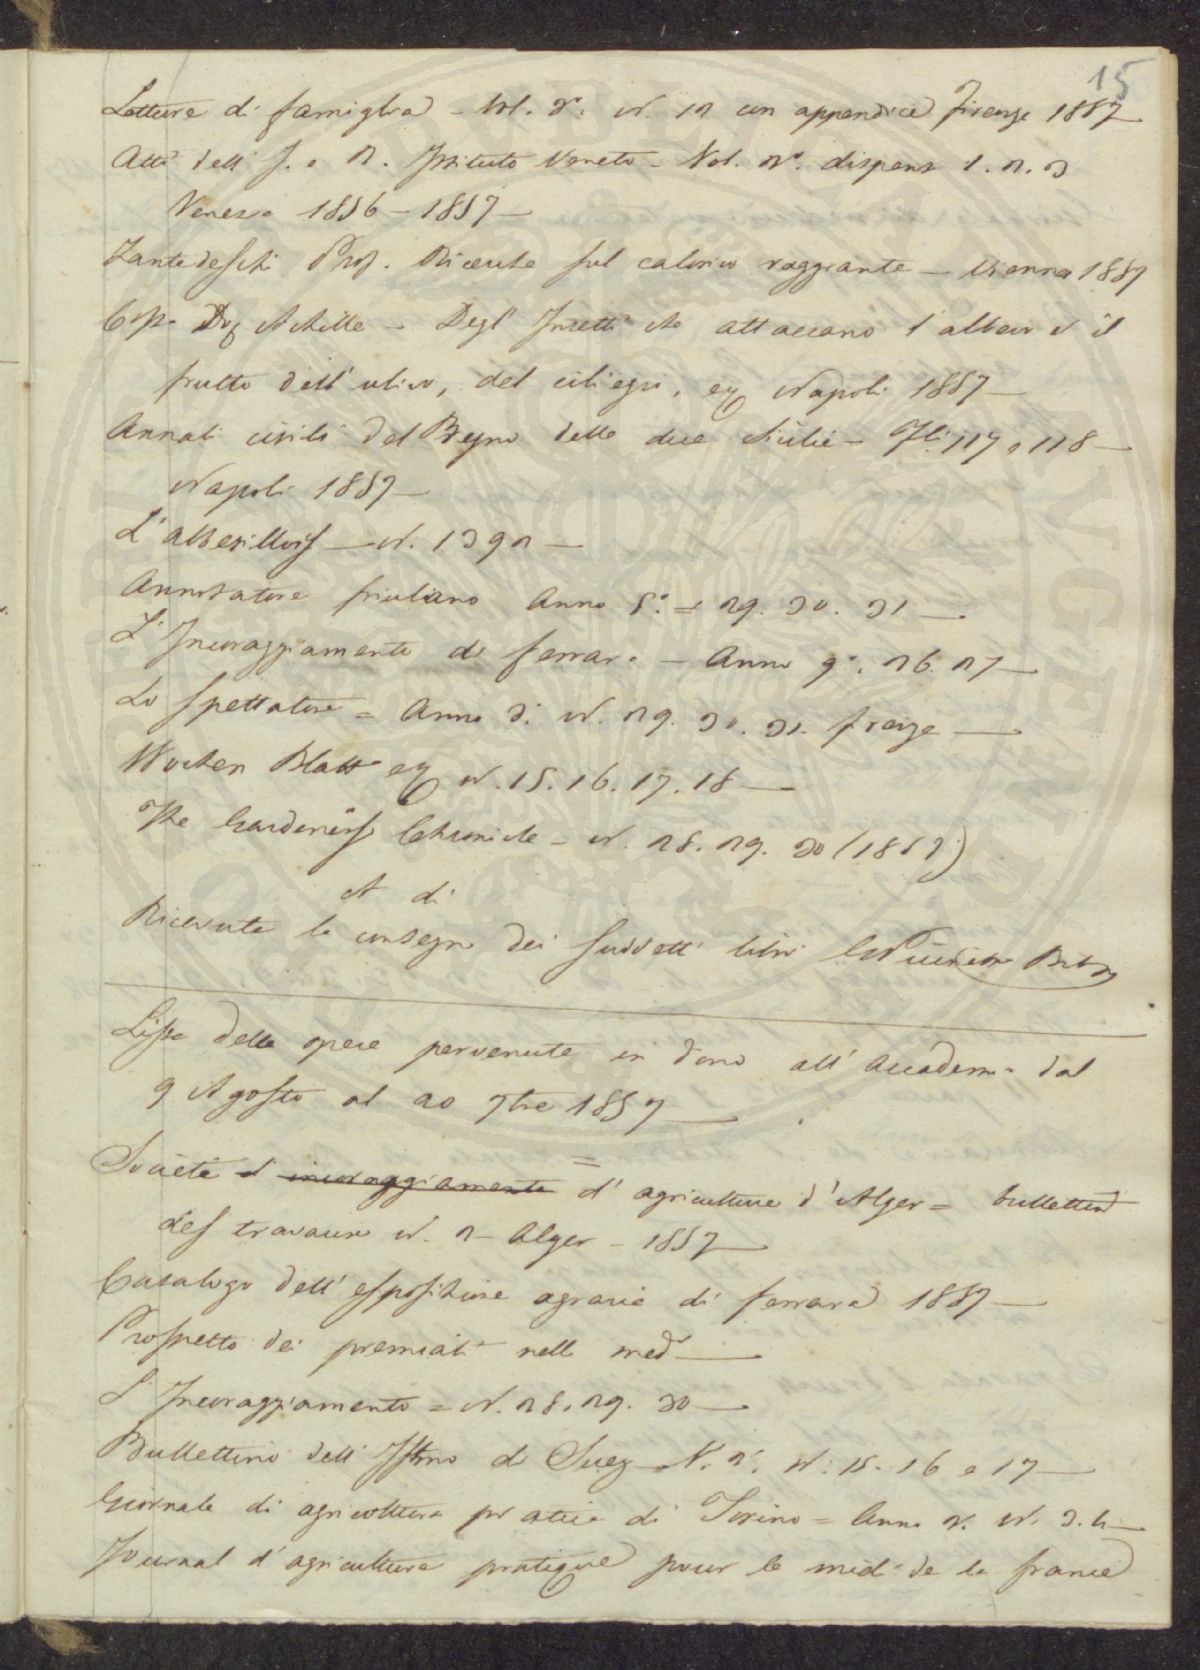 15
Letture di famiglia - Vol. 8°. N. 12 con appendice Firenze 1857
Atti dell' I. e R. Istituto Veneto - Vol. 2°. dispens 1. 2. 3
Venezia 1856 - 1857 -
Zantedeschi Prof. Ricerche sul calorico raggiante - Vienna 1857
Costa Achille - Degl' Insetti che attaccano l'albero ed il
frutto dell' ulivo, del ciliegio, Napoli 1857 -
Annali civili del Regno delle due Sicilie - 117 e 118 -
Napoli 1857 -
N. 1392 -
Annotatore friulano Anno 5°. = 29. 30. 31 -
L'Incoraggiamento di Ferrara - Anno 9°. 26. 27 -
Lo Spettatore = Anno 3. N. 29. 30. 31. Firenze -
Wochen Blatt N. 15. 16. 17. 18 -
The Gardeners Chronicle - N. 28. 29. 30 (1857)
A di
Ricevute la consegna dei suddetti libri
Lista delle opere pervenute in dono all' Accademia dal
9 Agosto al 20 7bre 1857
=
Société d' incoraggiamento d' agriculture d'Alger = bullettin
des travaux N. 2 - Alger - 1857
Catalogo dell' esposizione agraria di Ferrara 1857 -
Prospetto dei premiati nella med
L'Incoraggiamento = N. 28. 29. 30 -
Bullettino dell' Istmo di Suez - N. 15. 16 e 17 -
Giornale di agricoltura pratica di Torino = Anno 2. N. 3. 4 -
Journal d'agriculture pratique pour le midi de la france